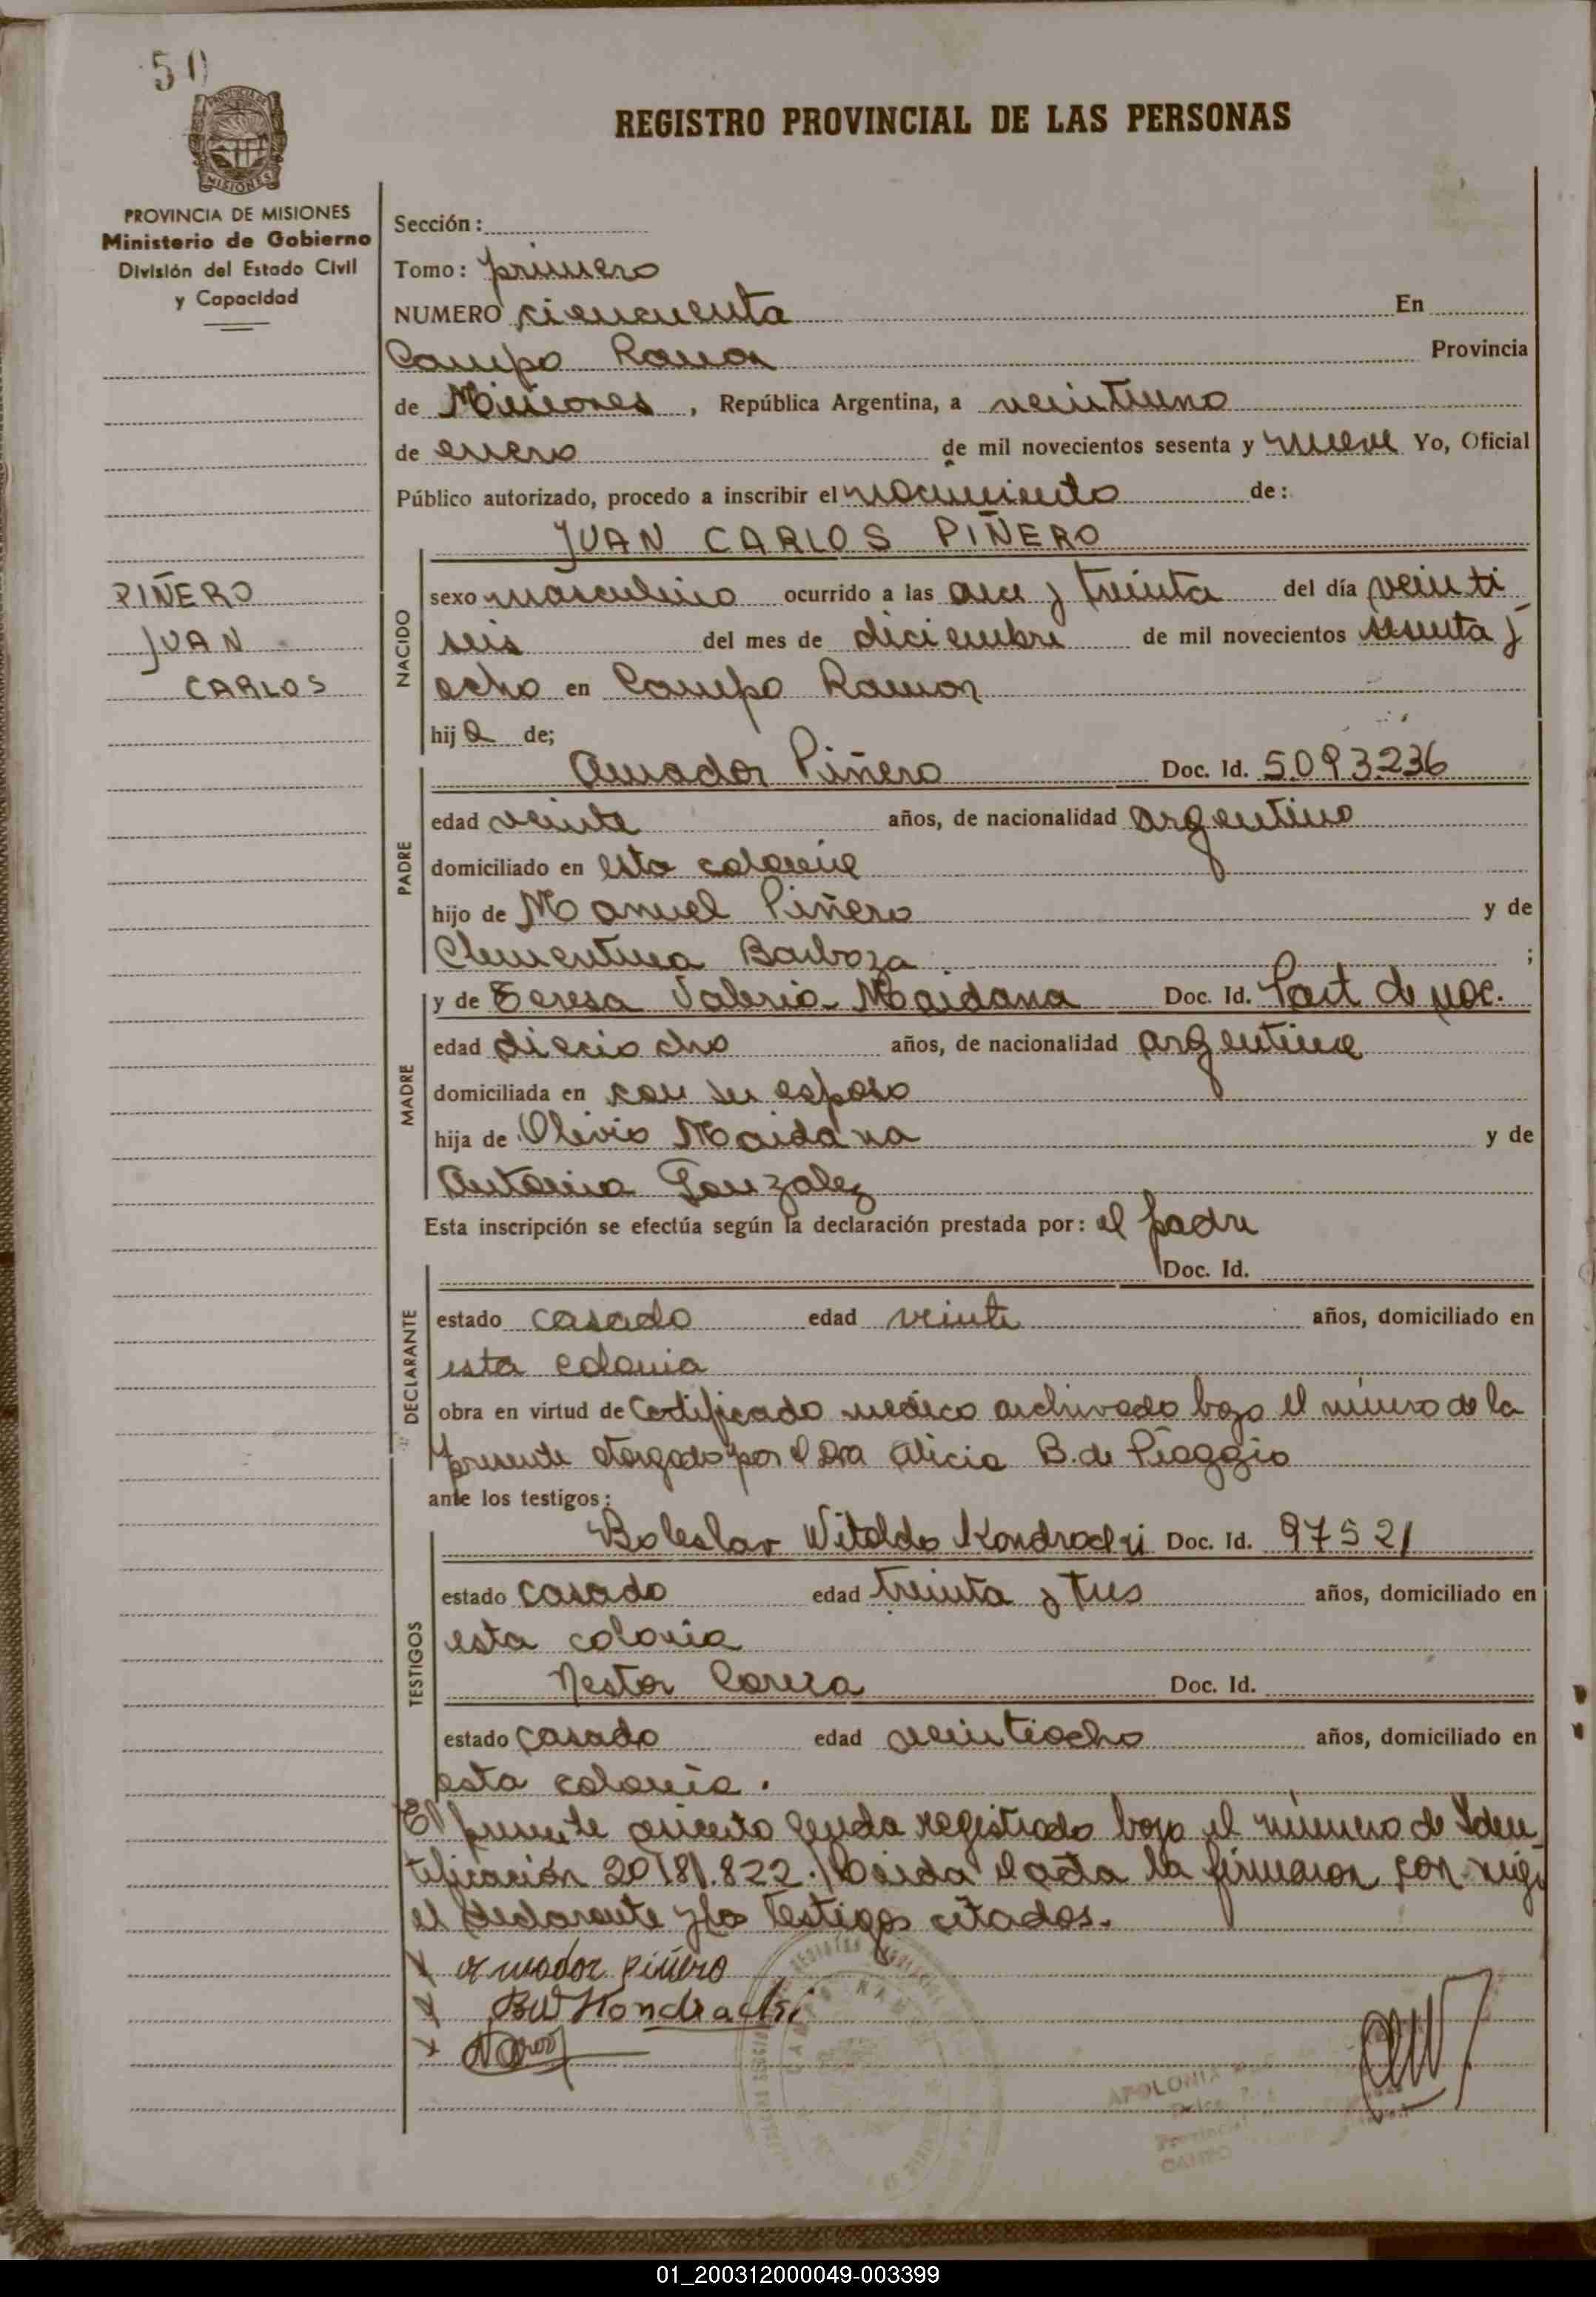 50
REGISTRO PROVINCIAL DE LAS PERSONAS
PROVINCIA DE MISIONES
Ministerio de Gobierno
División del Estado Civil
y Capacidad
MISIONES
Sección:
Tomo: primero
NUMERO cincuenta En
Campo Ramon Provincia
de Misiones, República Argentina, a veintiuno
de enero de mil novecientos sesenta y nueve Yo, Oficial
Público autorizado, procedo a inscribir el nacimiento de:
JUAN CARLOS PIÑERO
PIÑERO
JUAN
CARLOS
NACIDO
sexo masculino ocurrido a las once y treinta del día veinti
seis del mes de diciembre de mil novecientos sesenta y
ocho en Campo Ramon
hijo de;
PADRE
Amador Piñero Doc. Id. 5093236
edad veinte años, de nacionalidad argentino
domiciliado en esta colonia
hijo de Manuel Piñero y de
Clementina Barboza ;
MADRE
y de Teresa Valeria Maidana Doc. Id. Part de nac.
edad dieciocho años, de nacionalidad argentina
domiciliada en con su esposo
hija de Olivio Maidana y de
Antonia Gonzalez
Esta inscripción se efectúa según la declaración prestada por: el padre
Doc. Id.
DECLARANTE
estado casado edad veinte años, domiciliado en
esta colonia
obra en virtud de Certificado medico archivado bajo el número de la
presente otorgado por Dra Alicia B. de Piaggio
ante los testigos:
TESTIGOS
Boleslar Witoldo Kondrachi Doc. Id. 97521
estado casado edad treinta y tres años, domiciliado en
esta colonia
Nestor Doc. Id.
estado casado edad veintiocho años, domiciliado en
esta colonia.
El presente asiento queda registrado bajo el número de Iden
tificación 20.181.822. Leida el acta la firmaron con migo
el declarante y los testigos citados.
amador piñero
BW Kondrachi
APOLONIA
CAMPO
01_200312000049-003399